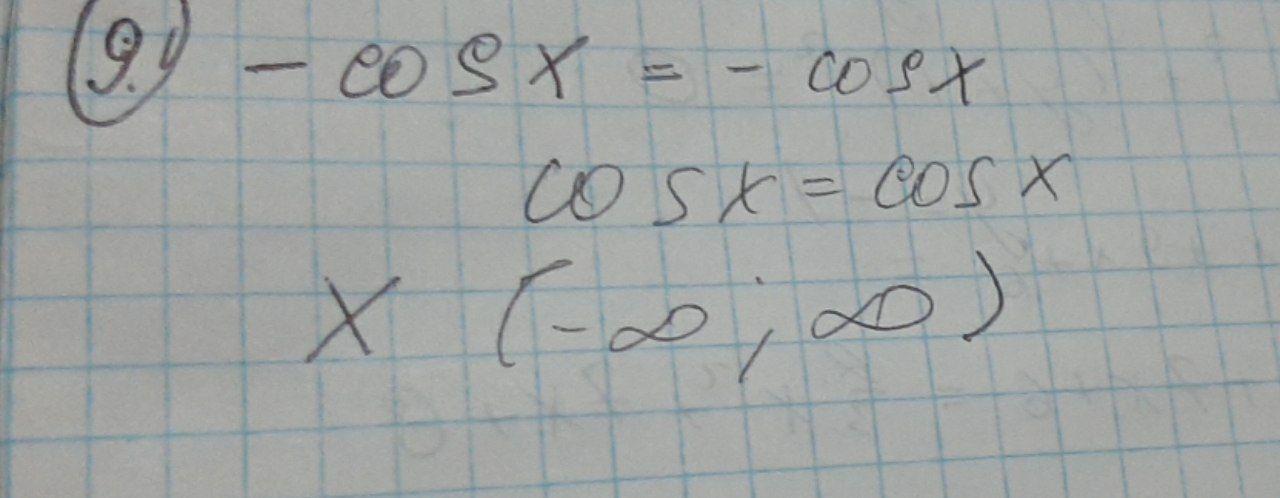 9.) - cos x = - cos x
cos x = cos x
x (-∞; ∞)